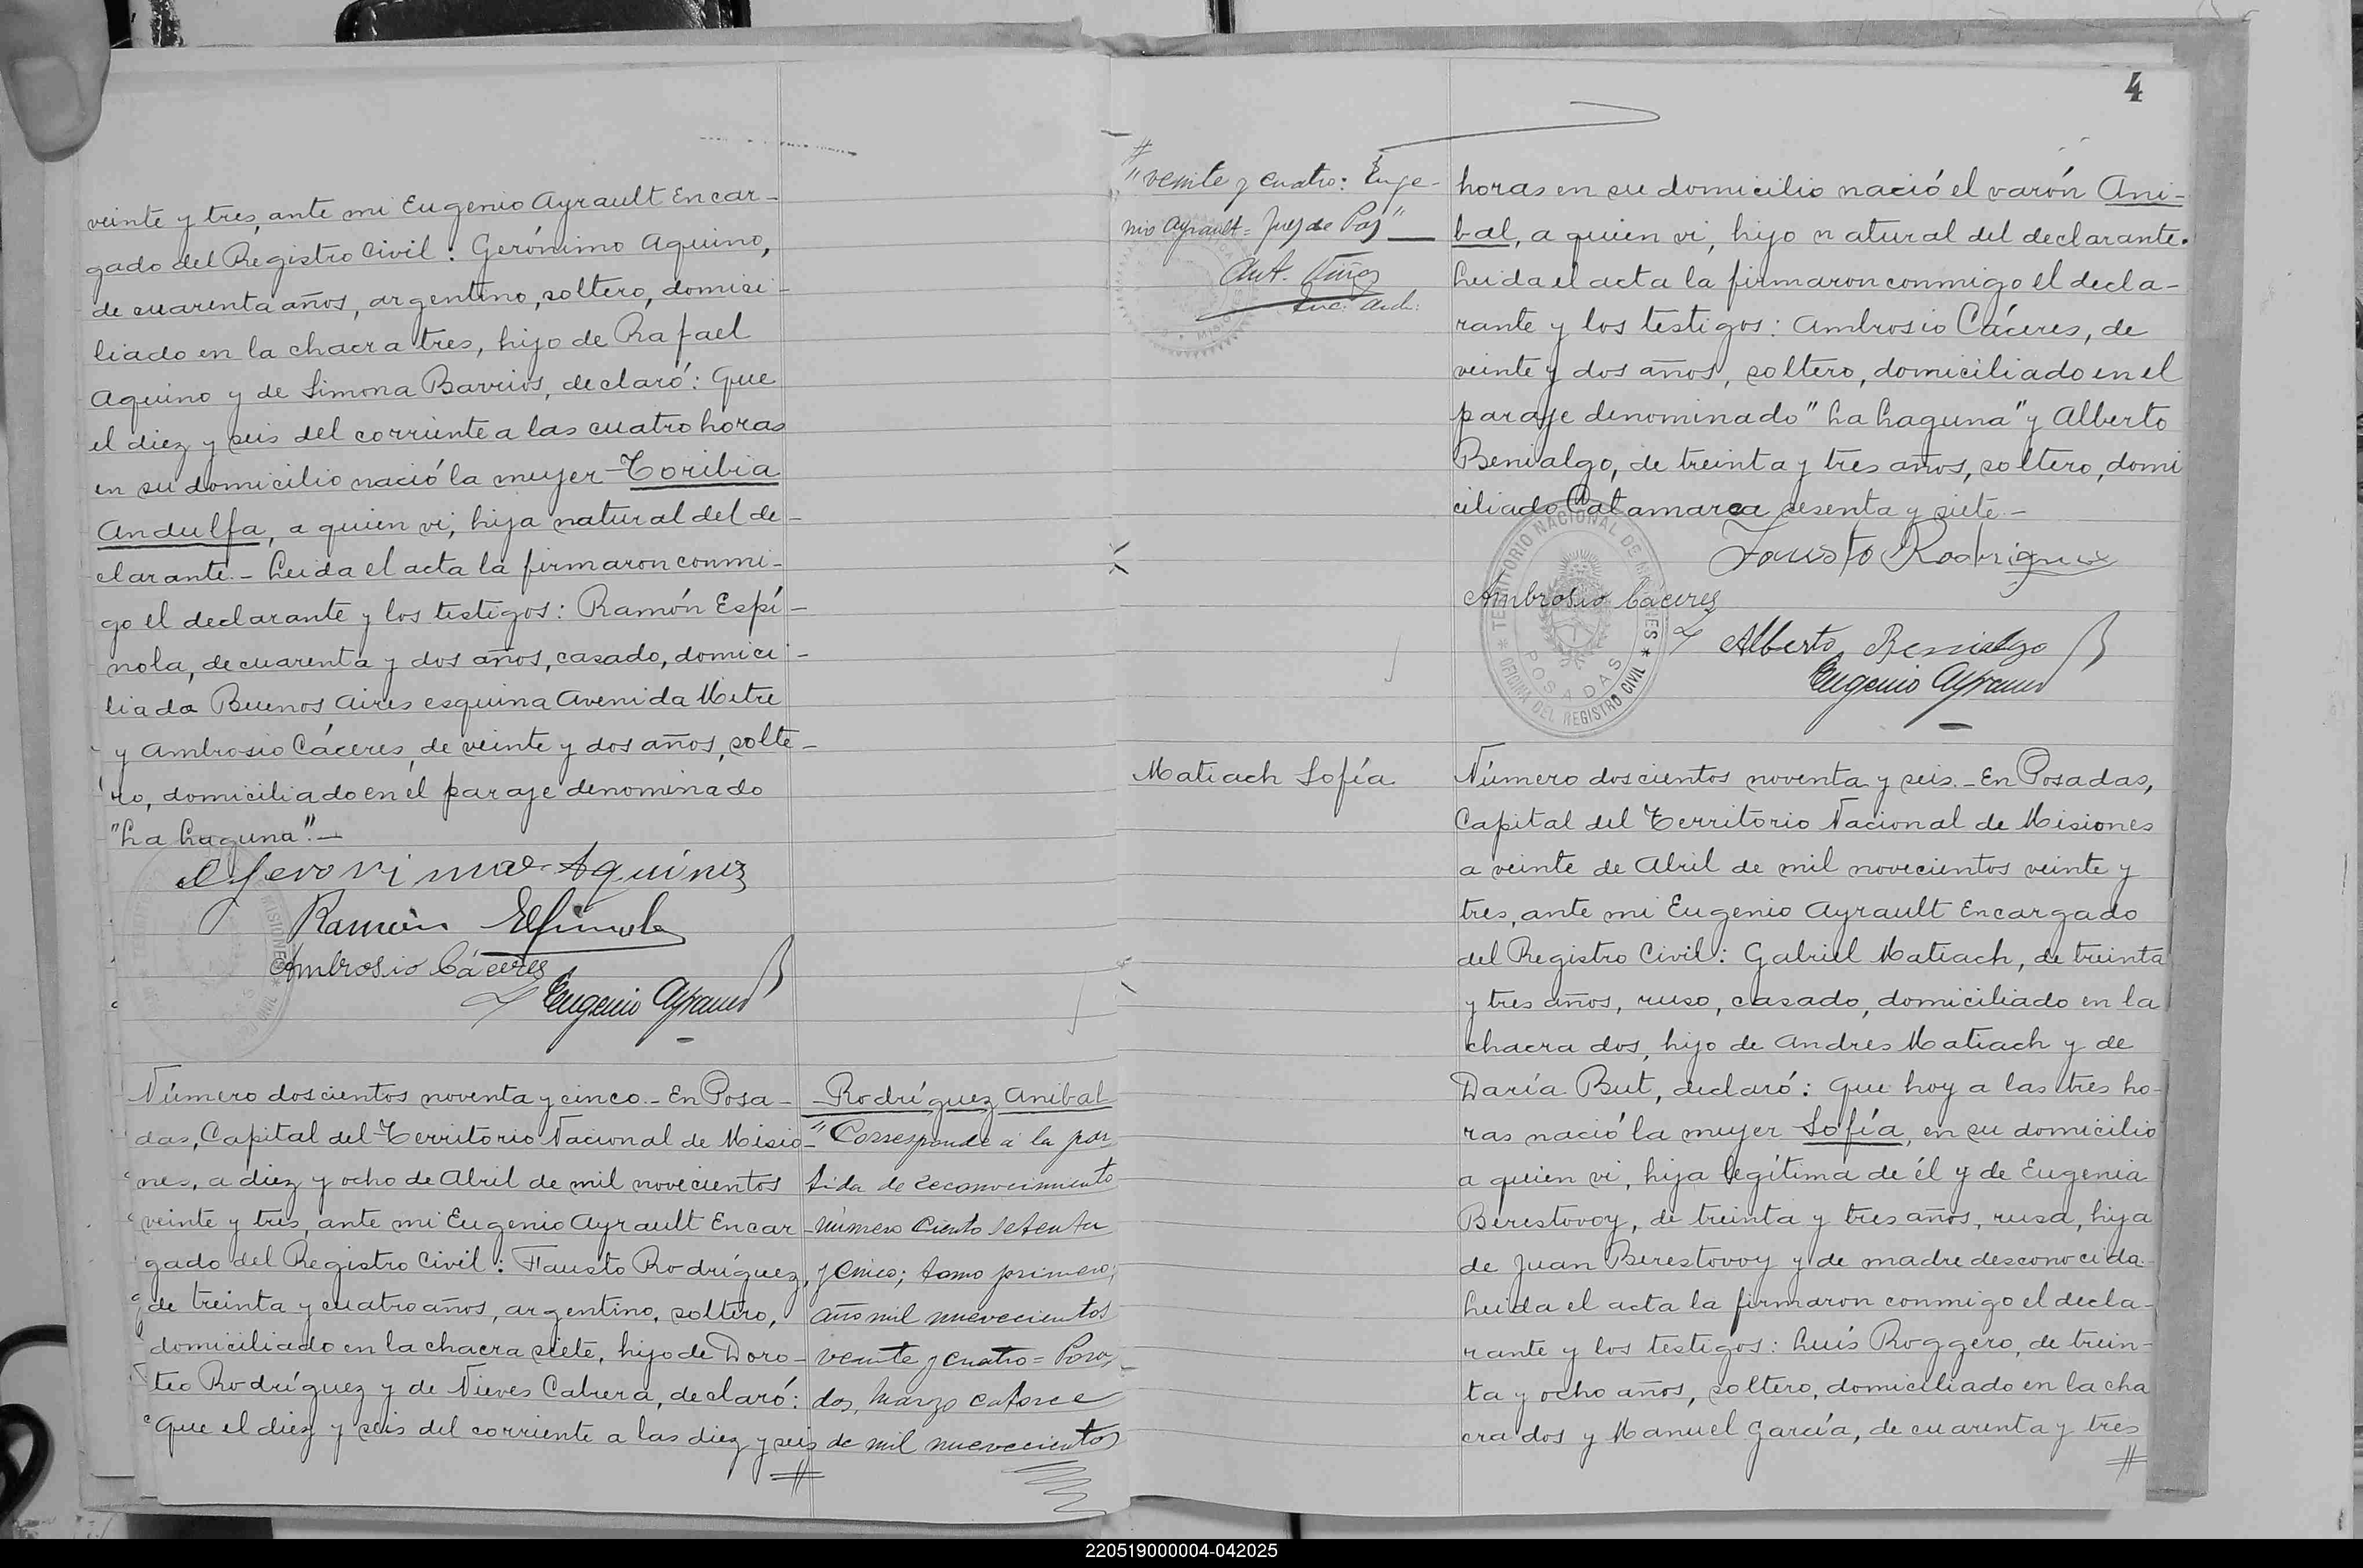 veinte y tres, ante mi Eugenio Ayrault Encar-
gado del Registro Civil: Gerónimo Aquino,
de cuarenta años, argentino, soltero, domici-
liado en la chacra tres, hijo de Rafael
Aquino y de Simona Barrios, declaró: Que
el diez y seis del corriente a las cuatro horas
en su domicilio nació la mujer Toribia
Andulfa, a quien vi, hija natural del de-
clarante.- Leida el acta la firmaron conmi-
go el declarante y los testigos: Ramón Espí-
nola, de cuarenta y dos años, casado, domici-
liado Buenos Aires esquina Avenida Mitre
y Ambrosio Cáceres, de veinte y dos años, solte-
ro, domiciliado en el paraje denominado
"La Laguna".-
Geronimo Aquino
Ramón Espinola
Ambrosio Cáceres
Eugenio Ayrault
Número doscientos noventa y cinco.- En Posa-
das, Capital del Territorio Nacional de Misio-
nes, a diez y ocho de Abril de mil novecientos
veinte y tres, ante mi Eugenio Ayrault Encar
gado del Registro Civil: Fausto Rodríguez,
de treinta y cuatro años, argentino, soltero,
domiciliado en la chacra siete, hijo de Doro-
teo Rodríguez y de Nieves Cabrera, declaró:
Que el diez y seis del corriente a las diez y seis
#
Rodríguez Anibal
"Corresponde a la par
tida de reconocimiento
número ciento setenta
y cinco; tomo primero;
año mil nuevecientos
veinte y cuatro = Posa-
das, Marzo catorce
de mil nuevecientos
#
"veinte y cuatro: Euge-
nio Ayrault = Juez de Paz"
4
horas en su domicilio nació el varón Ani-
bal, a quien vi, hijo natural del declarante.
Leida el acta la firmaron conmigo el decla-
rante y los testigos: Ambrosio Cáceres, de
veinte y dos años, soltero, domiciliado en el
paraje denominado "La Laguna" y Alberto
Benialgo, de treinta y tres años, soltero, domi
ciliado Catamarca sesenta y siete.-
Fausto Rodriguez
Ambrosio Cáceres
Alberto Benialgo
Eugenio Ayrault
TERRITORIO NACIONAL DE MISIONES
POSADAS
OFICINA DEL REGISTRO CIVIL
Matiach Sofía
Número doscientos noventa y seis.- En Posadas,
Capital del Territorio Nacional de Misiones
a veinte de Abril de mil novecientos veinte y
tres, ante mi Eugenio Ayrault Encargado
del Registro Civil: Gabriel Matiach, de treinta
y tres años, ruso, casado, domiciliado en la
chacra dos, hijo de Andrés Matiach y de
Daría But, declaró: Que hoy a las tres ho-
ras nació la mujer Sofía, en su domicilio
a quien vi, hija legítima de él y de Eugenia
Berestovoy, de treinta y tres años, rusa, hija
de Juan Berestovoy y de madre desconocida.
Leida el acta la firmaron conmigo el decla-
rante y los testigos: Luis Roggero, de trein-
ta y ocho años, soltero, domiciliado en la cha
cra dos y Manuel García, de cuarenta y tres
#
220519000004-042025